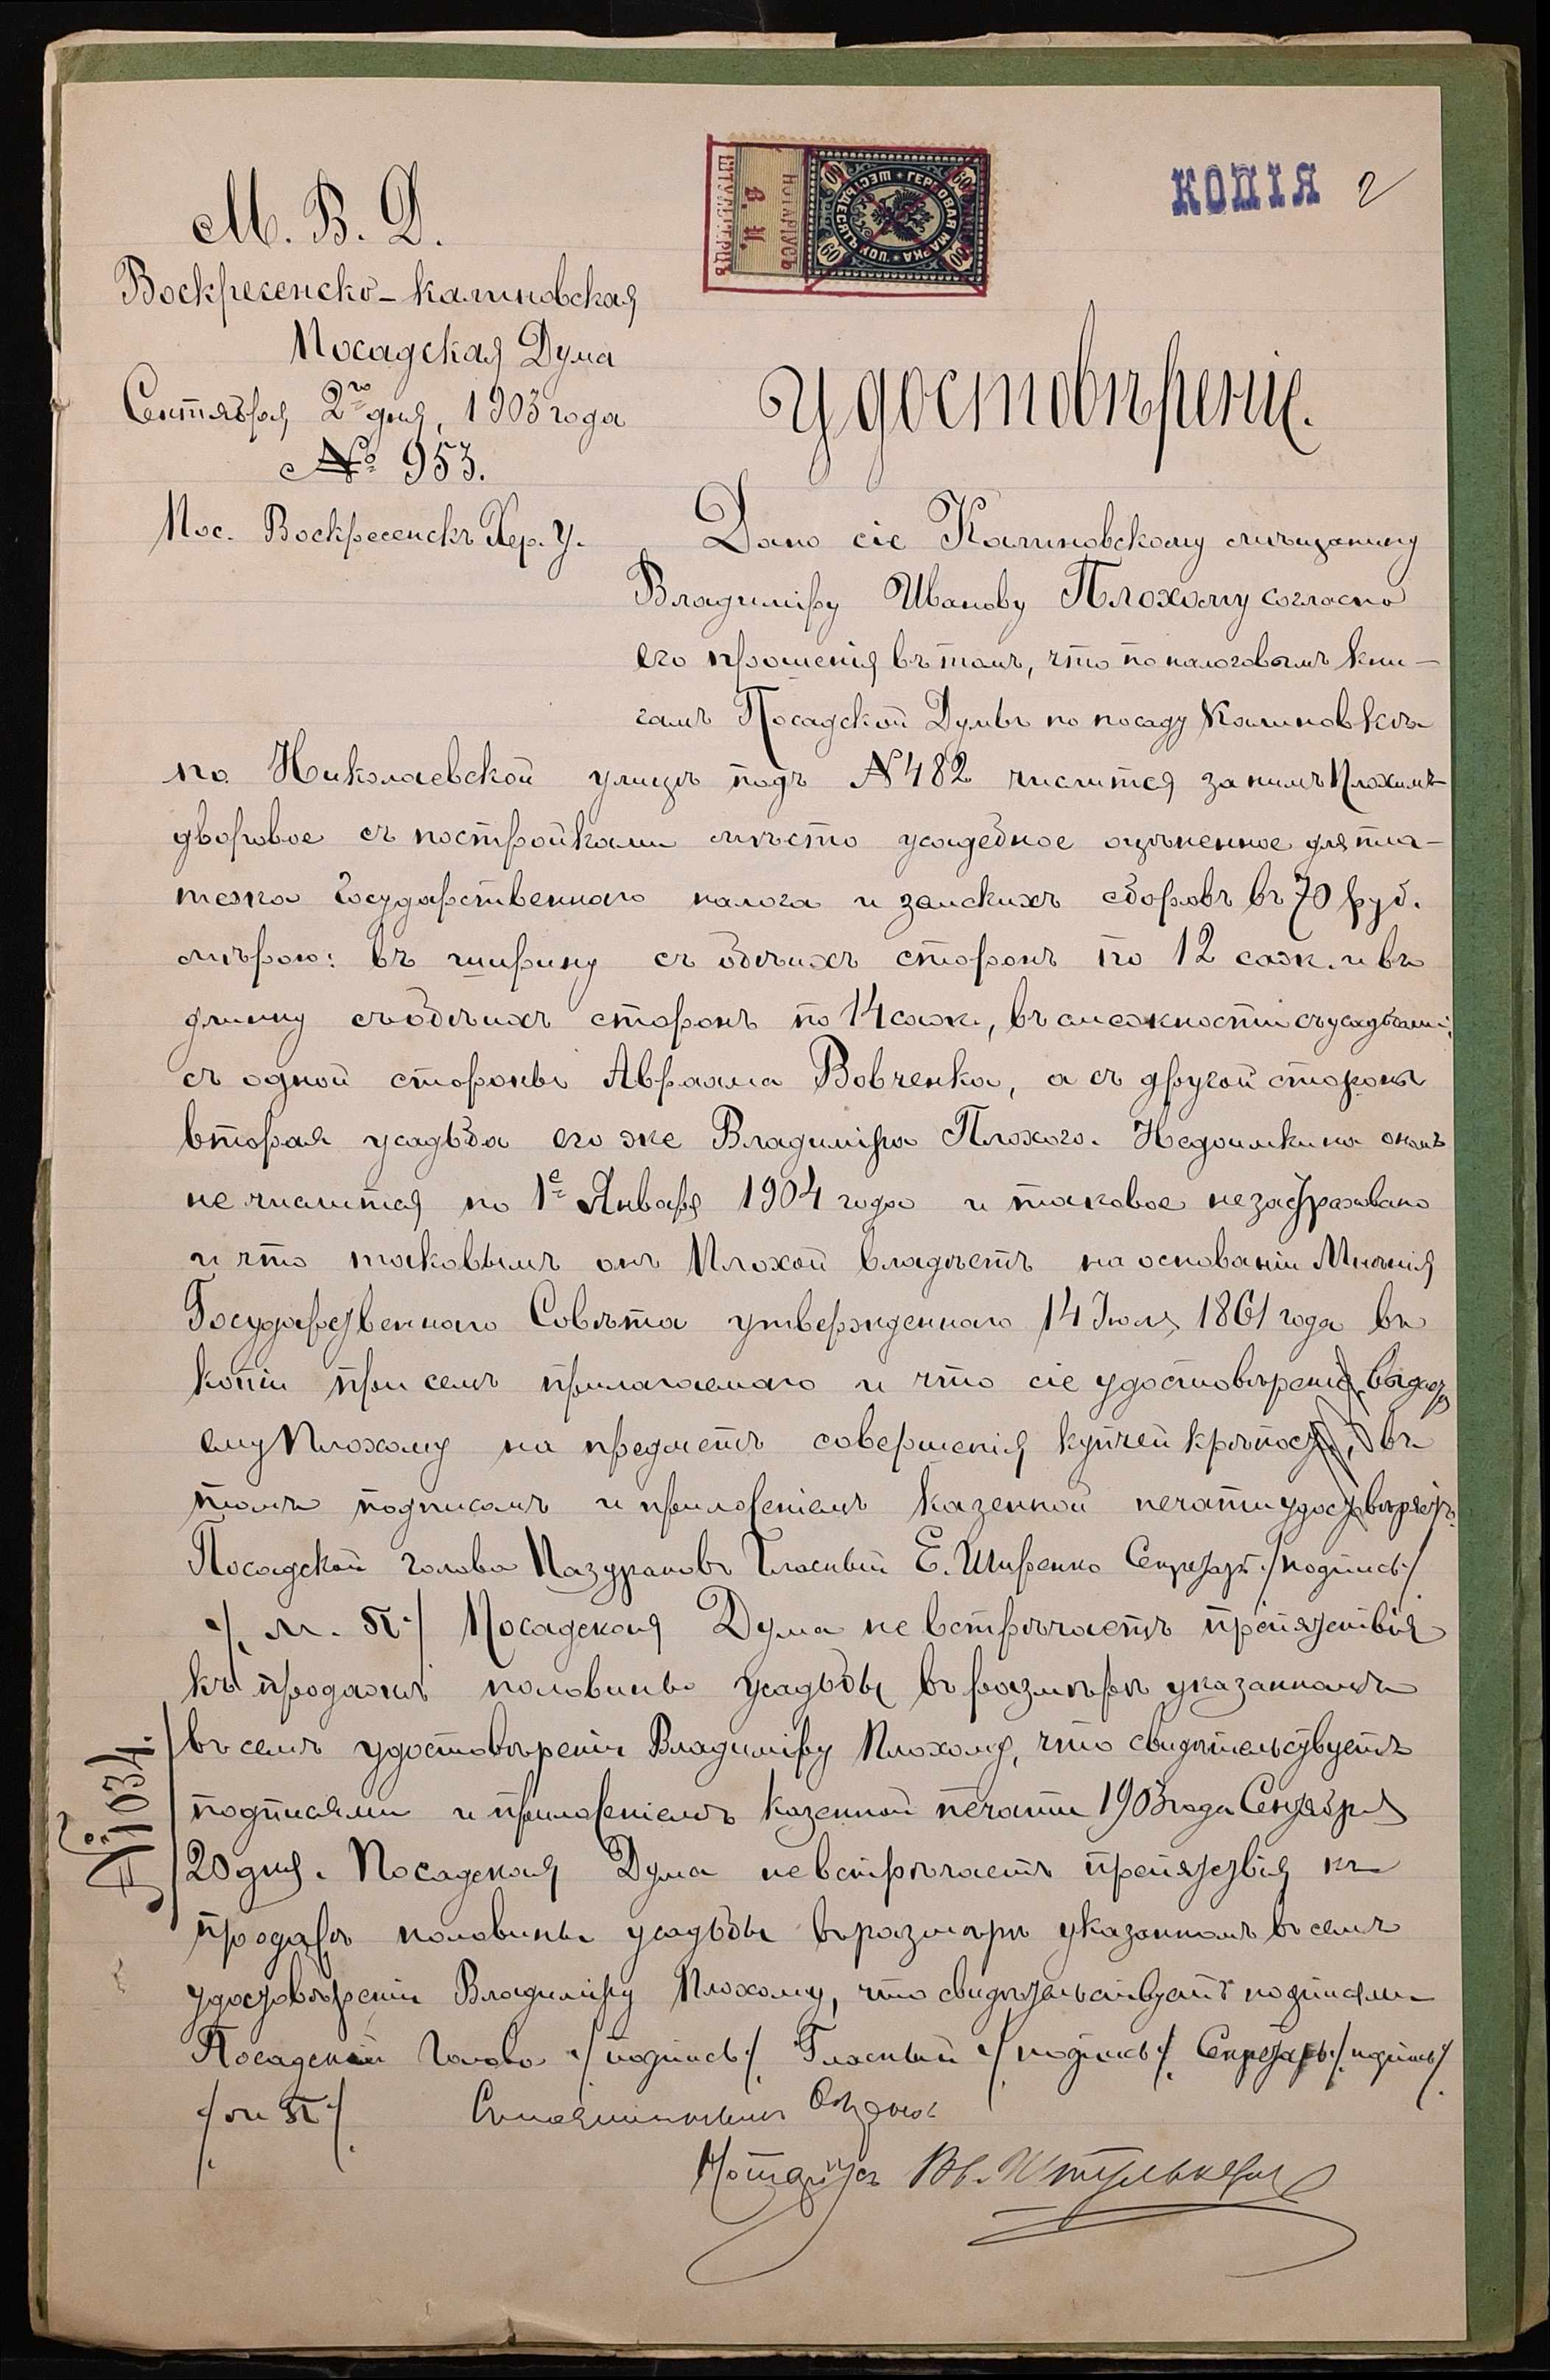 КОПІЯ 2
М. В. Д.
Воскресенско-Калиновская
Посадская Дума
Сентября 2го дня, 1903 года
№ 953.
Пос. Воскресенскъ Хер. у.
НОТАРІУСЪ
В. И.
ШТУЛЬКЕРЦЪ
ГЕРБОВАЯ МАРКА ШЕСТЬДЕСЯТЪ КОП.
60 60 60 60
Удостовѣреніе.
Дано сіе Калиновскому мѣщанину
Владиміру Иванову Плохому согласно
его прошенія въ томъ, что по налоговымъ кни-
гамъ Посадской Думы по посаду Калиновкѣ
по Николаевской улицѣ подъ № 482 числится за нимъ Плохимъ
дворовое съ постройками мѣсто усадебное оцѣненное для пла-
тежа Государственнаго налога и земскихъ сборовъ въ 70 руб.
мѣрою: въ ширину съ обѣихъ сторонъ по 12 саж. и въ
длину съ обѣихъ сторонъ по 14 саж., въ смежности съ усадьбами:
съ одной стороны Авраама Вовченка, а съ другой стороны
вторая усадьба его же Владиміра Плохого. Недоимки на ономъ
не числится по 1е Января 1904 года и таковое незастраховано
и что таковымъ онъ Плохой владѣетъ на основаніи Мнѣнія
Государственнаго Совѣта утвержденнаго 14 Іюля 1861 года въ
копіи при семъ прилагаемаго и что сіе удостовѣреніе выдано
ему Плохому на предметъ совершенія купчей крѣпости, въ
томъ подписомъ и приложеніемъ казенной печати удостовѣряетъ.
Посадской голова Мазурановъ Гласный Е. Ширенко Секретарь /подпись/
/м. п./ Посадская Дума не встрѣчаетъ препятствія
къ продажѣ половины усадьбы въ размѣрѣ указанномъ
въ семъ удостовѣреніи Владиміру Плохому, что свидѣтельствуетъ
подписями и приложеніемъ казенной печати 1903 года Сентября
20 дня. Посадская Дума не встрѣчаетъ препятствія къ
№ 1034.
продажѣ половины усадьбы въ размѣрѣ указанномъ въ семъ
удостовѣреніи Владиміру Плохому, что свидѣтельствуетъ подписями
Посадской Голова /подпись/ Гласный /подпись/ Секретарь /подпись/
/м. п./
Нотаріусъ Вв. Штулькерцъ